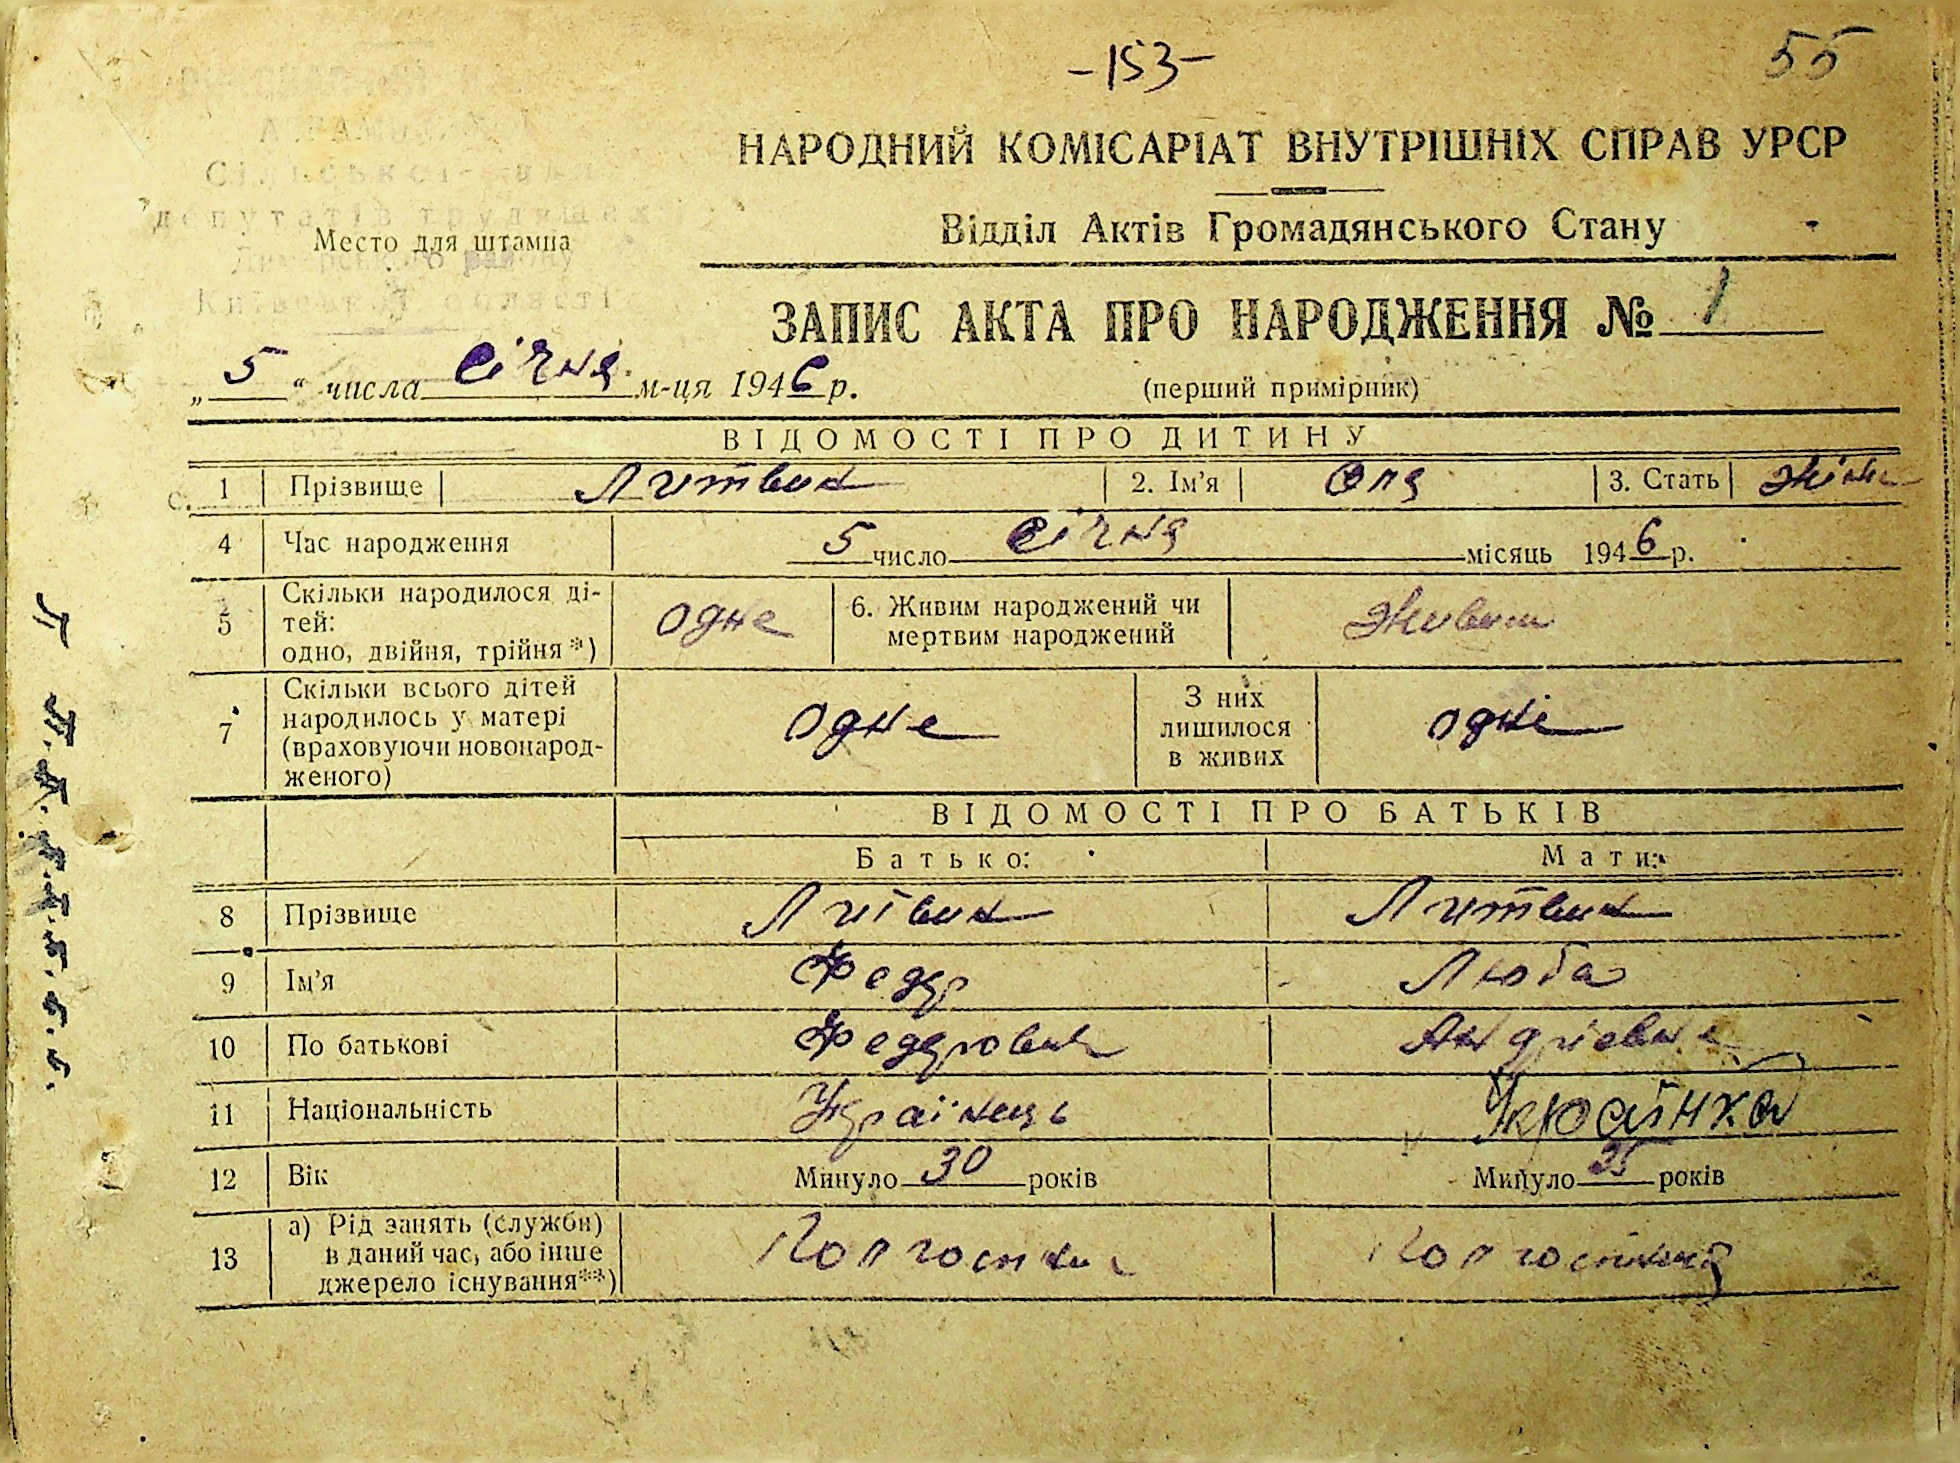 -153-
55
НАРОДНИЙ КОМІСАРІАТ ВНУТРІШНІХ СПРАВ УРСР
Відділ Актів Громадянського Стану
Сільської
депутатів трудящих
Место для штампа
Димерського району
Київської області
ЗАПИС АКТА ПРО НАРОДЖЕННЯ № 1
(перший примірник)
„5“ числа січня м-ця 1946 р.
ВІДОМОСТІ ПРО ДИТИНУ
1 Прізвище Литвин 2. Ім'я Оля 3. Стать
4 Час народження 5 число січня місяць 1946 р.
5 Скільки народилося ді-
тей:
одно, двійня, трійня *) одне
6. Живим народжений чи
мертвим народжений живим
7 Скільки всього дітей
народилось у матері
(враховуючи новонарод-
женого) одне
З них
лишилося
в живих одне
ВІДОМОСТІ ПРО БАТЬКІВ
Батько: Мати:
8 Прізвище Литвин Литвин
9 Ім'я Федір Люба
10 По батькові Федорович
11 Національність Українець Українка
12 Вік Минуло 30 років Минуло 25 років
13 а) Рід занять (служби)
в даний час, або інше
джерело існування**) Колгоспник Колгоспниця